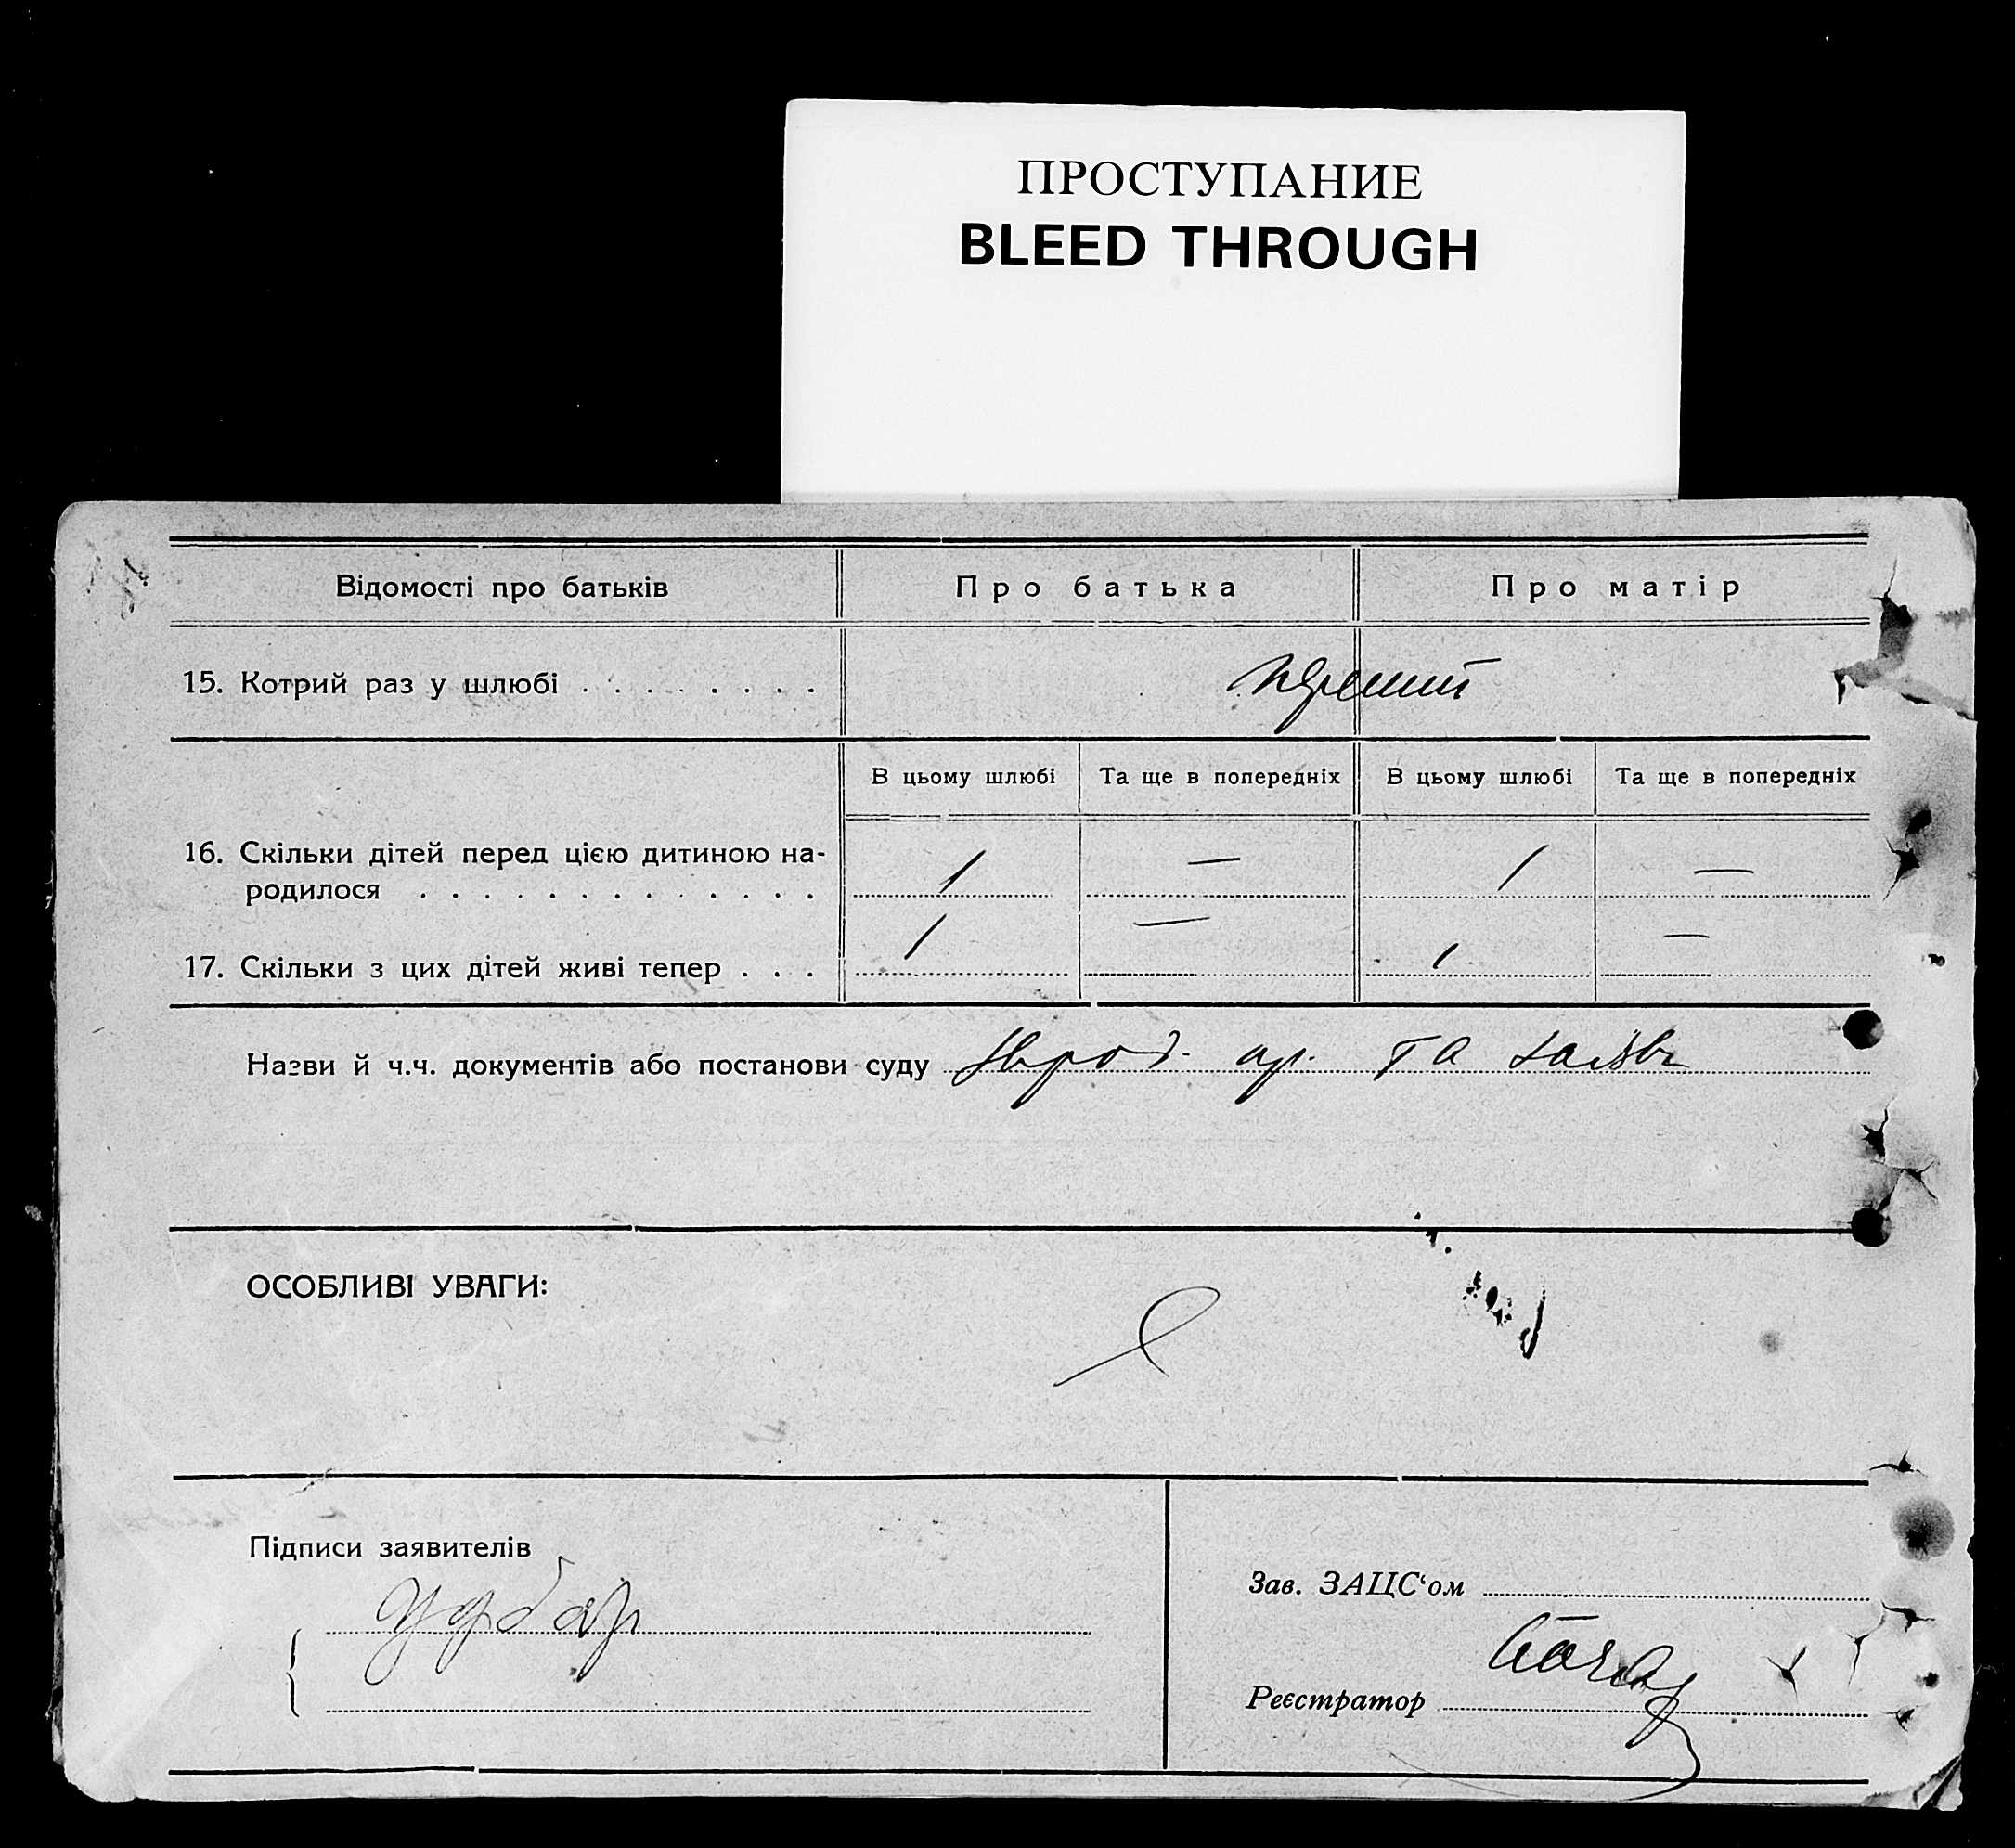 ПРОСТУПАНИЕ
BLEED THROUGH
Відомості про батьків Про батька Про матір
15. Котрий раз у шлюбі . . . . . . . . . перший
В цьому шлюбі Та ще в попередніх В цьому шлюбі Та ще в попередніх
16. Скільки дітей перед цією дитиною на-
родилося . . . . . . . . . . . . . 1 — 1 —
17. Скільки з цих дітей живі тепер . . . 1 — 1 —
Назви й ч.ч. документів або постанови суду та
ОСОБЛИВІ УВАГИ:
Підписи заявителів
Зав. ЗАЦС‘ом
Реєстратор